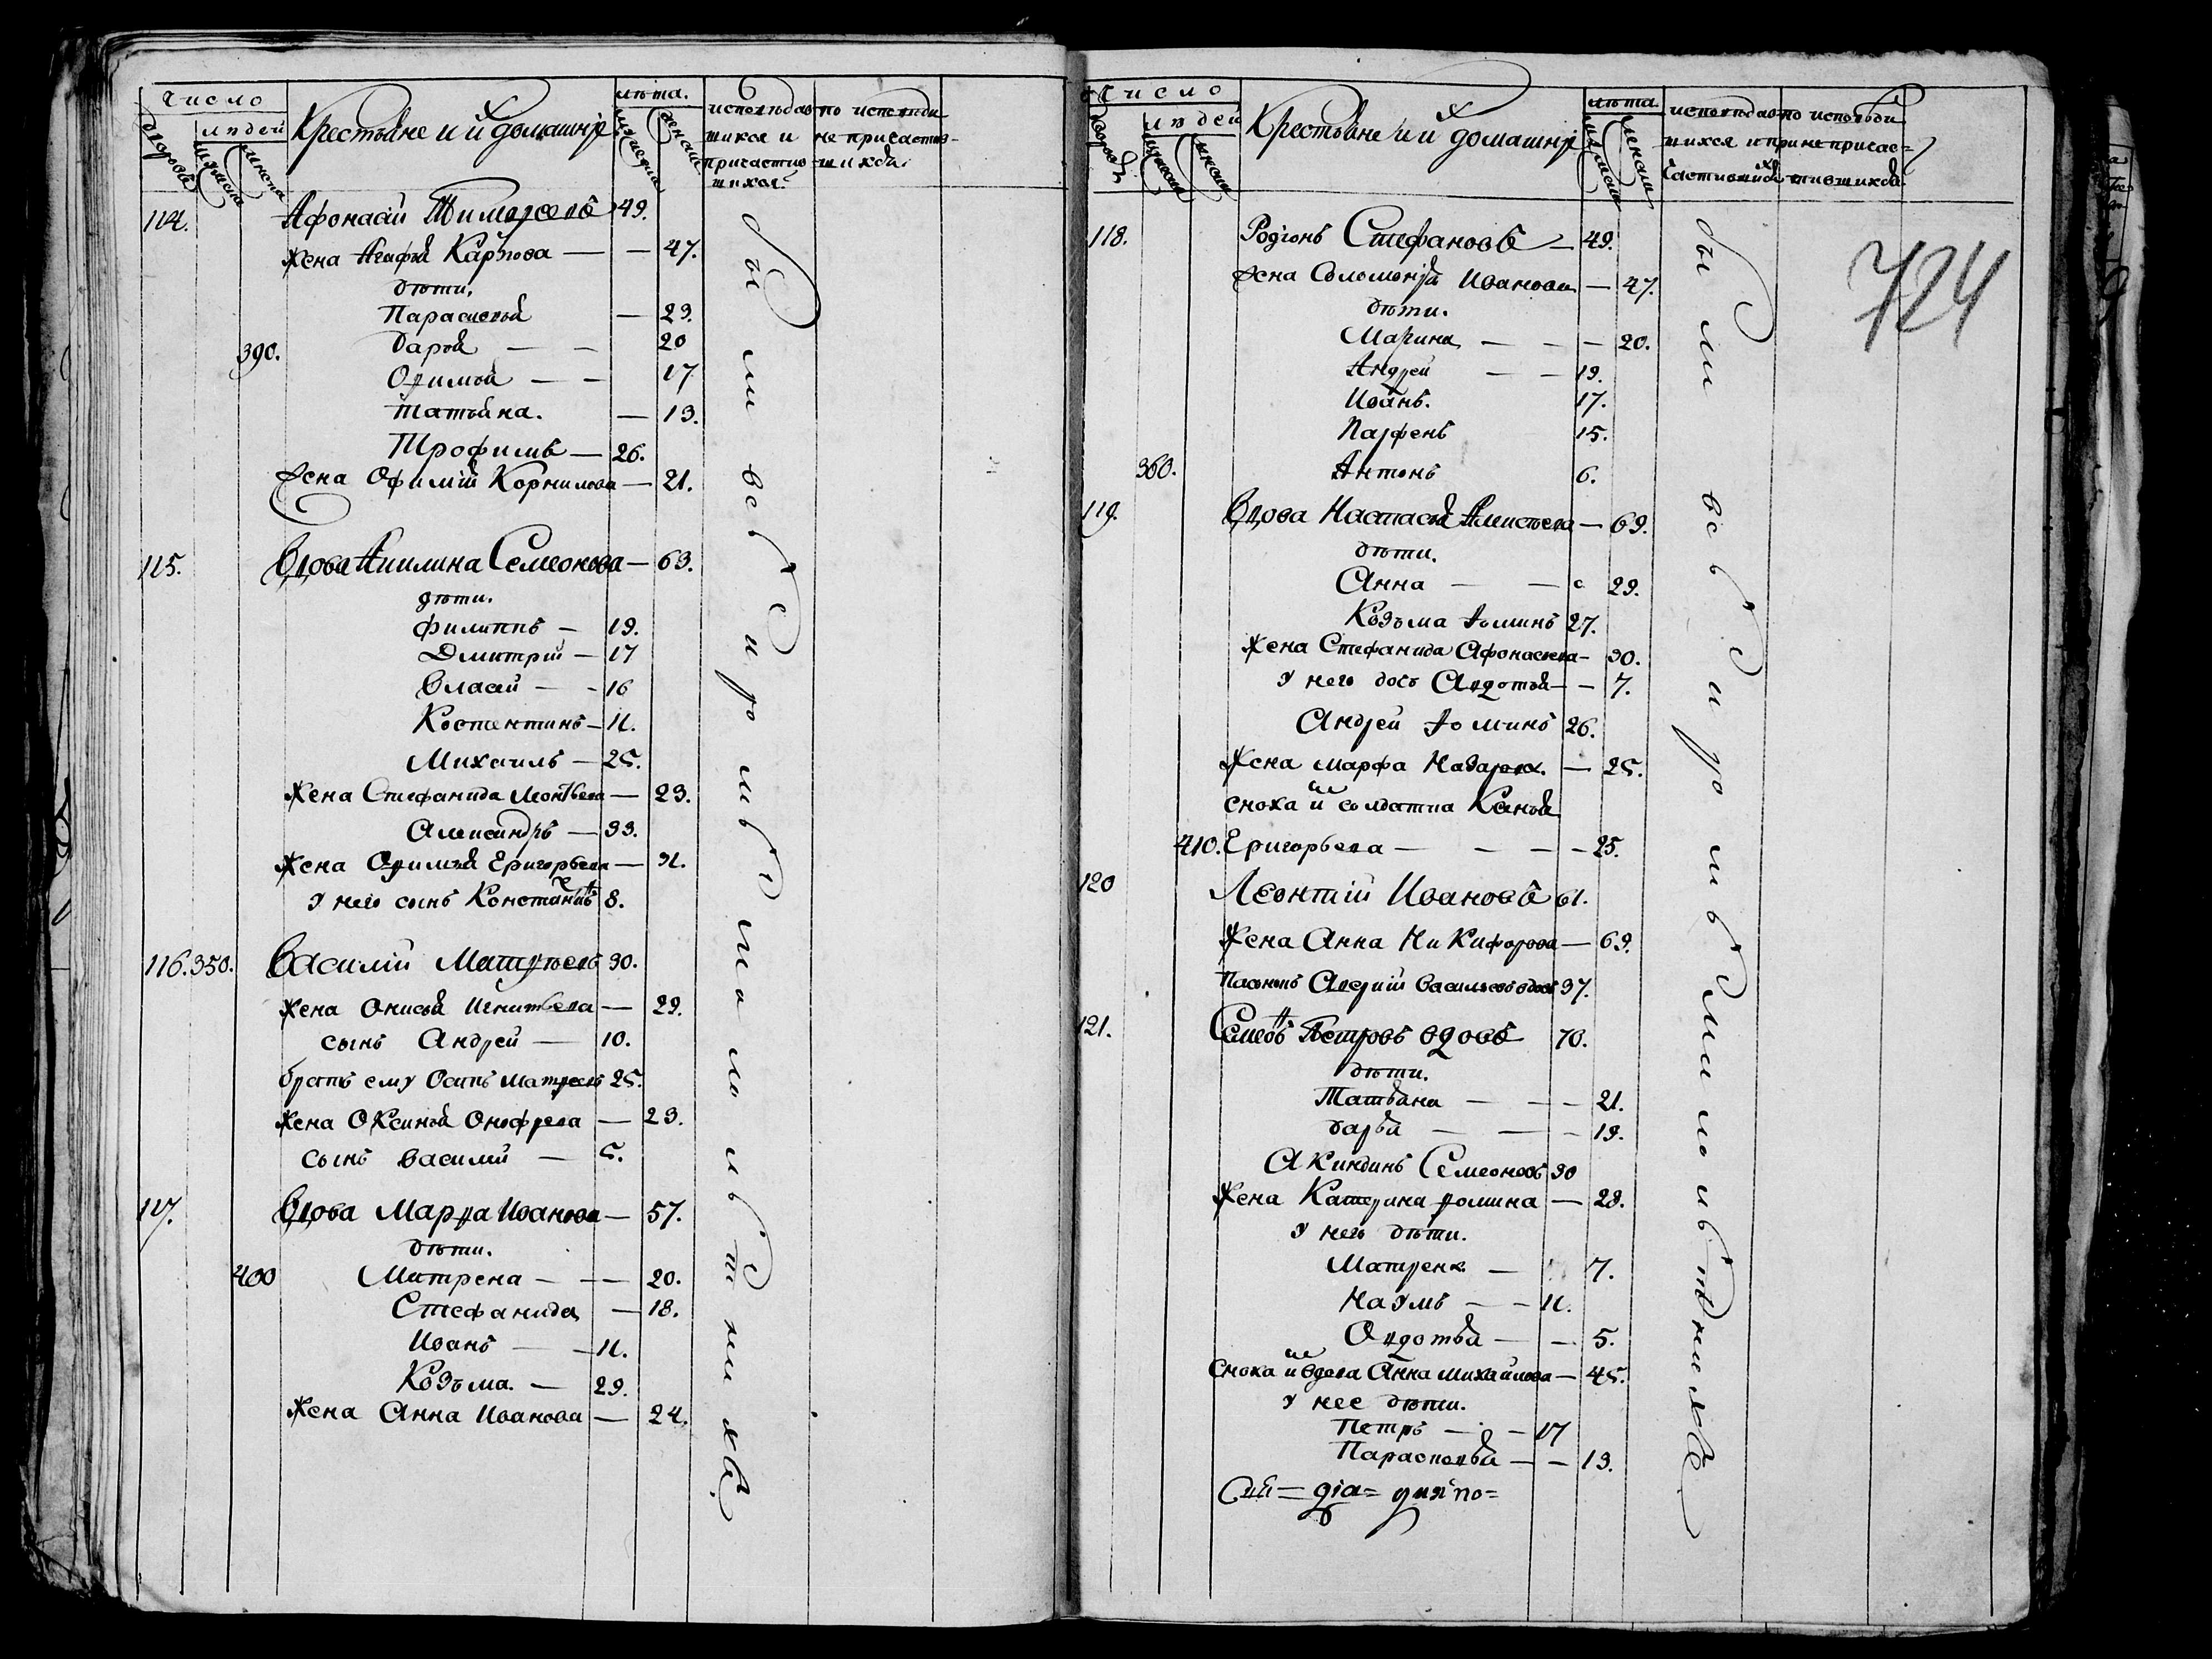 число
людей
Крестьяне и их домашнїе
лѣта.
исповѣдав
шихся и
причастив
шихся.
по исповѣди
не причастив-
шихся.
114.
Афонасїй Тимофеевъ 49.
жена Агафья Карпова — — 47.
дѣти.
Парасковья — 23.
390. Дарья — — 20
Офимья — — 17
Татьяна. — 13.
Трофимъ — 26.
жена Офимїя Корнилова — 21.
115. Вдова Акилина Семеонова — 63.
дѣти.
Филиппъ — 19.
Дмитрїй — 17
Власей — — 16
Костентинъ — 11.
Михаилъ — 25.
жена Стефанида Леонтьева — 23.
Александръ — 33.
жена Офимья Григорьева — 31.
у него сынъ Константинъ 8.
116. 350. Василїй Матфѣевъ 30.
жена Онисья Игнатьева — 29.
сынъ Андрей — 10.
братъ ему Осипъ Матфеевъ 25.
жена Оксинья Онофреева — 23.
сынъ Василїй — 5.
117. Вдова Марфа Иванова — 57.
дѣти.
400 Матрена — — — 20.
Стефанида — 18.
Иванъ — — 11.
Козьма. — 29.
жена Анна Иванова — 24.
были всѣ
число
людей
Крестьяне и их домашнїе
лѣта
исповѣдав
шихся и при
частившихся
по исповѣди
не причас=
тившихся.
724
118. Родїонъ Стефановъ — 49.
жена Соломонїя Иванова — 47.
дѣти.
Марина — — — 20.
Андрей — — 19.
Иванъ. 17.
Парфенъ 15.
360. Антонъ 6.
119. Вдова Настасья Алексеева — 69.
дѣти.
Анна — — 29.
Козьма Фоминъ 27.
жена Стефанида Афонасьева — 30.
у него дочь Авдотья — — 7.
Андрей Фоминъ 26.
жена Марфа Назарова — 25.
сноха их солдатка Ксенья
410. Григорьева — — — — 25.
120 Леонтїй Ивановъ 61.
жена Анна Никифорова — 63.
Пасынокъ Андрей Васильевъ вдовъ 37.
121. Семенъ Петровъ вдовъ 70.
дѣти.
Татьяна — — — 21.
Дарья — — — 19.
Акиндинъ Семеоновъ 30
жена Катерина Фомина — 28.
у него дѣти.
Матрена — 7.
Наумъ — — 11.
Авдотья — — 5.
сноха их вдова Анна Михайлова — 45.
у нее дѣти.
Петръ — — 17
Парасковья — — 13.
были всѣ